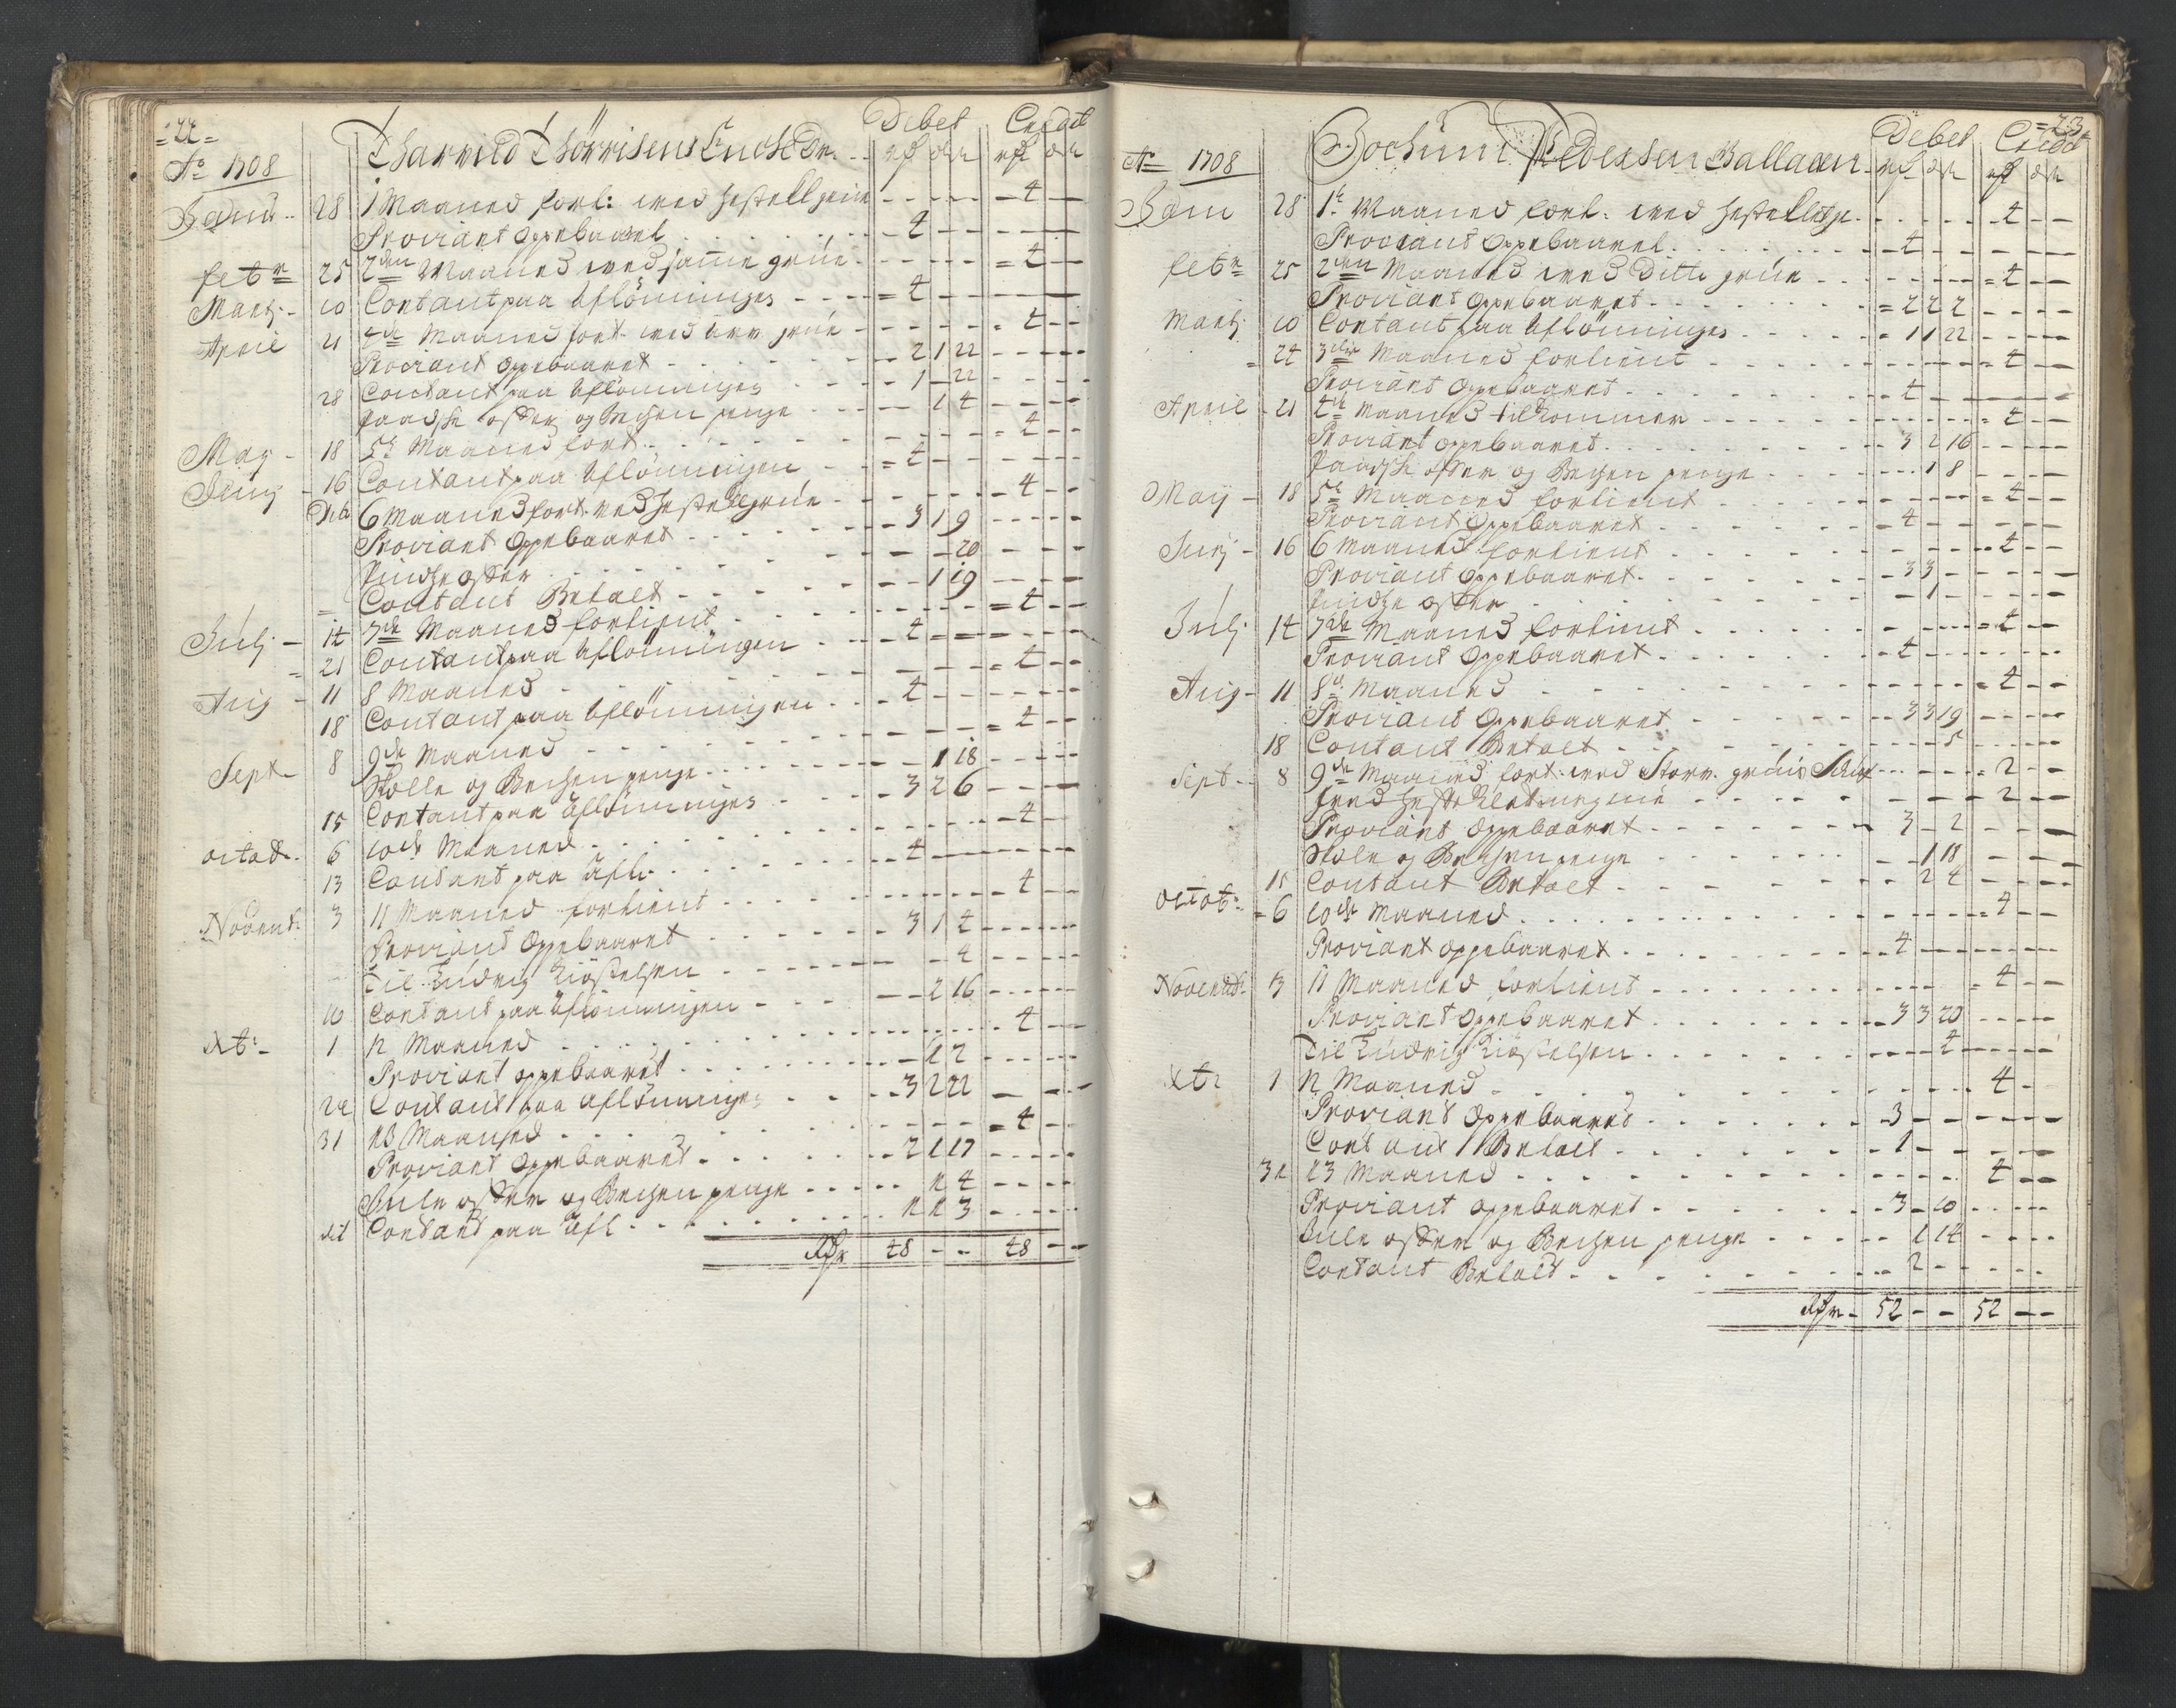 =22=
Debet Credit
Ao 1708 Tharrild Thörrisens
Janu 28 1 Maaned fort: ved
Proviant Oppebaaret - 4
febr 25 2den Maaned ved samme grue - 4
Martj 10 Contant paa Aflönningen - 4
April 21 4de Maaned fort. ved grue - 4
Proviant Oppebaaret - 2 1 22
28 Contant paa Aflönningen - 1 - 22
Paadske offer og penge - 1 4
May 18 5te Maaned fort - 4
Junj 16 Contant paa Aflönningen - 4
Dito 6 Maaned fort. ved grue - 4
Proviant Oppebaaret - 3 1 9
Pindse offer - 20
Contant Betalt - 1 19
Julj 14 7de Maaned fortient - 4
21 Contant paa Aflönningen - 4
Aug 11 8 Maaned - 4
18 Contant paa Aflönningen - 4
Sept 8 9de Maaned - 4
og penge - 1 18
15 Contant paa Aflönningen - 3 2 6
octob. 6 10de Maaned - 4
13 Contant paa Afl. - 4
Novemb. 3 11 Maaned fortient - 4
Proviant Oppebaaret - 3 1 4
Til Ludvig - 4
10 Contant paa Aflönningen - 2 16
Xb. 1 12 Maaned - 4
Proviant oppebaaret - 1 2
Contant paa Aflönningen - 3 2 22
31 13 Maaned - 4
Proviant Oppebaaret - 2 1 17
Jule offer og penge - 1 4
dit Contant paa Afl - 1 1 3
Rdr 48 - - 48 - -
=23
Debet Credit
Ao 1708 Jochum Pedersen
Janu 28 1te Maaned fort. ved - 4
Proviant Oppebaaret - 4
febr 25 2den Maaned ved Ditto grue - 4
Proviant Oppebaaret - 2 2 2
Martj 10 Contant paa Aflönningen - 1 1 22
24 3die Maaned fortient - 4
Proviant Oppebaaret - 4
April 21 4de Maaned tilkommer - 4
Proviant Oppebaaret - 3 2 16
Paadske offer og penge - 1 8
May 18 5te Maaned fortient - 4
Proviant Oppebaaret - 4
Junj 16 6 Maaned fortient - 4
Proviant Oppebaaret - 3 3 -
Pindse offer - 1 -
Julj 14 7de Maaned fortient - 4
Proviant Oppebaaret - 4
Aug 11 8de Maaned - 4
Proviant Oppebaaret - 3 3 19
18 Contant Betalt - 5
Sept 8 9de Maaned fort. ved Storv. - 2
- 2
Proviant Oppebaaret - 3 - 2
og penge - 1 18
15 Contant Betalt - 2 4
Octob. 6 10de Maaned - 4
Proviant oppebaaret - 4
Novemb. 3 11 Maaned fortient - 4
Proviant Oppebaaret - 3 3 20
Til Ludvig - 4
Xb. 1 12 Maaned - 4
Proviant Oppebaaret - 3
Contant Betalt - 1
31 13 Maaned - 4
Proviant oppebaaret - 3 - 10
Jule offer og penge - 1 14
Contant Betalt - 2
Rdr - 52 - - 52 - -